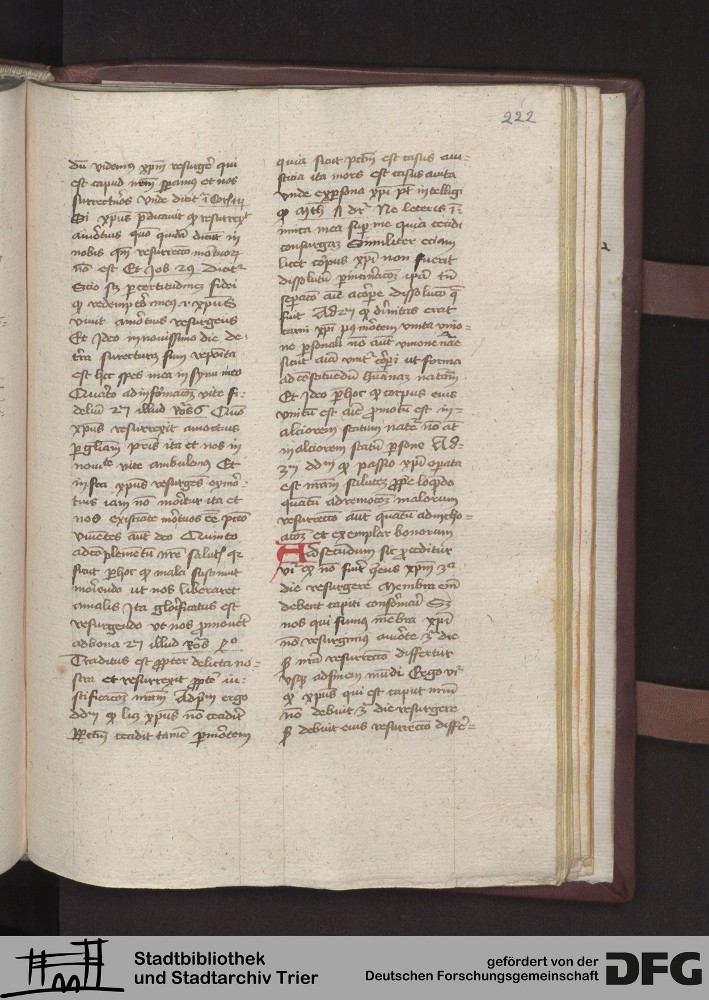 222
dū videmus xpm resurgere qui
est capud nrm speramus et nos
surrecturos Unde dicitur i Cor xv
Si xpus predicatur quod resurrexit
a mortuis quo quidam dicunt in
nobis quoniam resurreccio mortuorum
nō est Et Job 29 dicitur
Scio per certitudinem fidei
quod redemptor meus xpus
vivit a mortuis resurgens
Et ideo in novissimo die de
terra surrecturus sum reposita
est hec spes mea in synu meo
Quarto ad informacōem vite fi-
delium illud Ro 6 Quo
xpus resurrexit a mortuis
per gliam pris ita et nos in
novitate vite ambulemus Et
infra xpus resurgens ex mor-
tuis iam nō moritur ita et
vos existimate mortuos esse peccato
viventes aut deo Quinto
ad complementū nre salutis quia
sicut per hoc quod mala sustinuit
moriendo ut nos liberaret
a malis Ita glorificatus est
resurgendo ut nos promoveret
ad bona illud Ros 4o
Traditus est propter delicta no-
stra et resurrexit propter iu-
stificacōem nram Ad pm ergo
ddm quod licet xpus nō cecidit
per peccatum cecidit tamē per mortem
quia sicut peccatum est casus a iu-
sticia ita mors est casus a vita
unde ex persona xpi potest intelligi
quod Mich dr Ne leteris i-
nimica mea super me quia cecidi
consurgam Similiter eciam
licet corpus xpi non fuerit
dissolutū per incineracōem ipsa tn
separacio aīe a corpore dissolucio quedam
fuit Ad 2m quod divinitas erat
carni xpi post mortem unita unio-
ne personali nō aut unione nature
sicut aīa unitur corpori ut forma
ad constituendū humanam naturam
Et ideo per hoc quod corpus eius
unitū est aīe promotū est in
alciorem statum nature nō aut
in alciorem statū persone Ad
3m ddm quod passio xpi operata
est nram salutem proprie loquendo
quantū ad remocōem malorum
resurreccio aut quantū ad incho-
acōem et exemplar bonorum
Ad secundum sic proceditur
vi quod nō fuit xpm 3a
die resurgere Membra enim
debent capiti conformari Sed
nos qui sumus membra xpi
nō resurgimus a morte 3a die
sed nra resurreccio differtur
usque ad finem mūdi Ergo vi
quod xpus qui est caput nrm
nō debuit 3a die resurgere
sed debuit eius resurreccio differ-
Stadtbibliothek
und Stadtarchiv Trier
gefördert von der
Deutschen Forschungsgemeinschaft
DFG